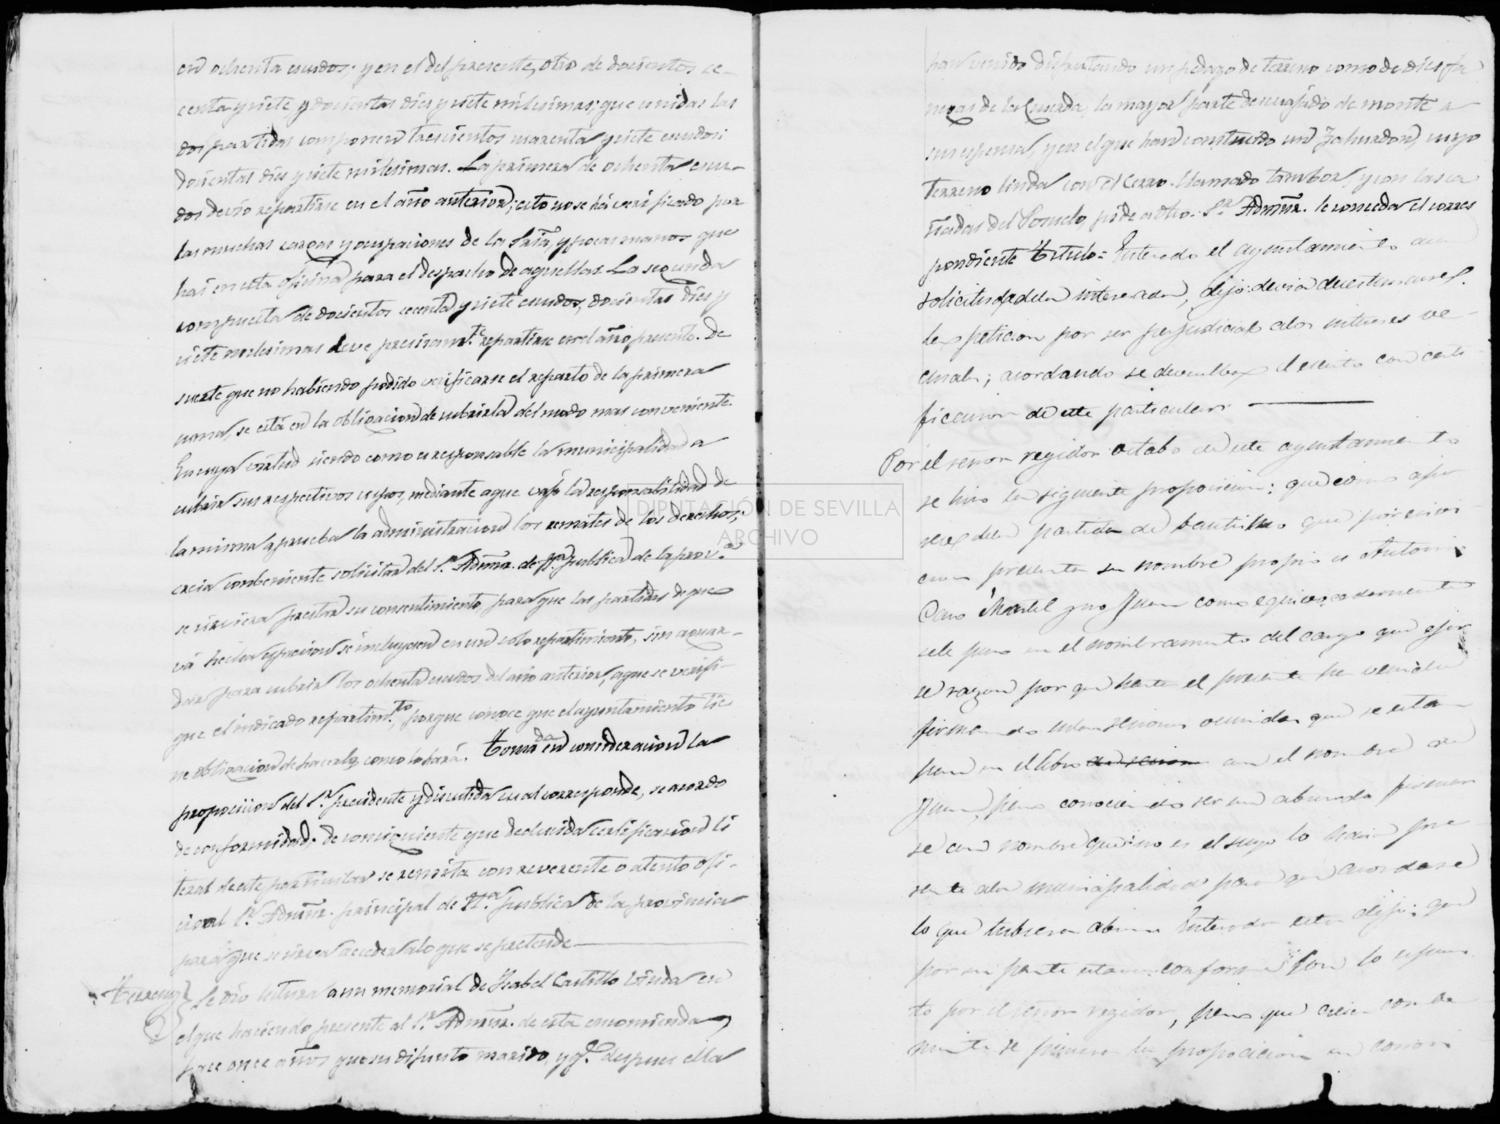 en ochenta escudos; y en el del presente, otro de docientos se-
centa y siete y docientas dies y siete milesimas; que unidas las
dos partidas componen trescientos cuarenta y siete escudos
docientas dies y siete milesimas. La primera de ochenta escu-
dos devio repartirse en el año anterior; esto no se há verificado por
las muchas cargas y ocupaciones de la Sria, y pocas manos que
hai en esta oficina para el despacho de aquellas. La segunda
compuesta de docientos secenta y siete escudos, docientas dies y
siete milesimas deve precisamte. repartirse en el año presente. De
suerte que no habiendo podido verificarse el reparto de la primera
suma, se está en la obligacion de cubrirla del modo mas conveniente.
En cuya virtud siendo como es responsable la municipalidad a
cubrir sus respectivos cupos, mediante a que vajo la responsabilidad de
la misma aprueba la administracion los remates de los derechos;
creia combeniente solicitar del Sr. Admr. de Ha. publica de la prova.
se sirviera prestar su consentimiento, para que las partidas de que
vá hecha espresion se incluyesen en un solo repartimiento, sin aguar-
dar para cubrir los ochenta escudos del año anterior, a que se verifi-
que el indicado repartimto., porque conoce que el ayuntamiento tie
ne obligacion de hacerlo, como lo hará. Tomada en consideracion la
proposicion del Sr. presidente y discutida cual corresponde, se acordó
de conformidad: de consiguiente que deducida certificacion li
teral de este particular se remita con reverente o atento ofi-
cio al Sr. Admr. principal de Ha. publica de la provincia
para que se sirva acceder a lo que se pretende
Terreno } Se dio lectura a un memorial de Isabel Castillo Viuda en
el que haciendo presente al Sr. Admr. de esta encomienda
hace once años que su difunto marido, y ge. despues ella
han venido disfrutando un pedazo de terreno como de dies fa
negas de la Cuerda, la mayor parte descuajado de monte a
sus espensas, y en el que han construido un Zahurdon, cuyo
terreno linda con el Cerro llamado tambor, y con las ca
ñadas del Posuelo, pide a otro Sr. Admr. le conceda el corres
pondiente titulo = Enterado el ayuntamiento de la
solicitud de la interesada, dijo: devia desestimarse
la peticion por ser perjudicial a los intereses ve-
cinales; acordando se devuelva el escrito con certi
ficacion de este particular
Por el señor regidor octabo de este ayuntamiento
se hizo la siguiente proposicion: que como apa
rece de la partida de bautismo que por
presenta su nombre propio es Antonio
Caro Martel y no Juan como equivocadamente
se le puso en el nombramiento del cargo que ejer
ce razon por que hasta el presente ha venido
firmando las sesiones que se esta
en el libro con el nombre de
Juan, pero conociendo ser un absurdo firmar
se con nombre que no es el suyo lo hacia pre
sente a la municipalidad para que acordase
lo que tubiera a bien. Enterada esta dijo: que
por su parte estava conforme con lo espues
to por el señor regidor, pero que creia con ve
niente se la proposicion en